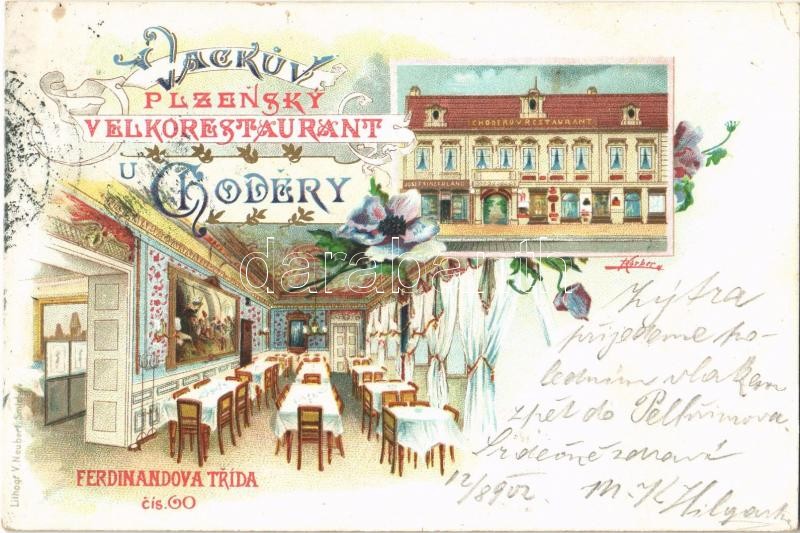 VACKŮV
PLZEŇSKÝ
VELKORESTAURANT
U CHODĚRY
CHODĚRŮV RESTAURANT
Harber
darabanth
Zýtra
přijedeme po-
ledním vlakem
zpět do Pelhřimova.
Srdečné zdraví
12/8 902 M. K. Hilgart
FERDINANDOVA TŘÍDA
čís. 60
Lithogr V. Neubert, Smíchov